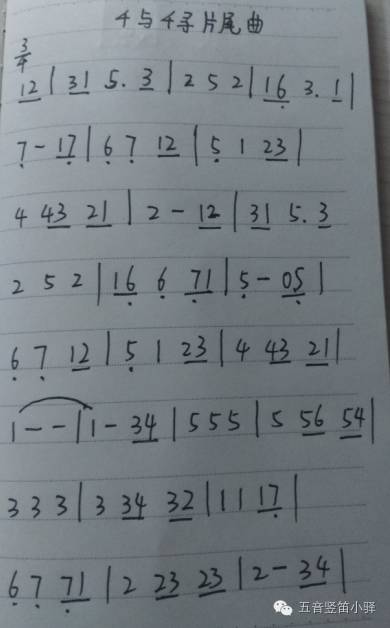 4与4寻片尾曲
3/4
12 | 31 5. 3 | 2 5 2 | 16 3. 1 |
7 - 17 | 6 7 12 | 5 1 23 |
4 43 21 | 2 - 12 | 31 5. 3
2 5 2 | 16 6 71 | 5 - 05 |
6 7 12 | 5 1 23 | 4 43 21 |
1 - - | 1 - 34 | 5 5 5 | 5 56 54 |
3 3 3 | 3 34 32 | 1 1 17 |
6 7 71 | 2 23 23 | 2 - 34 |
五音竖笛小驿